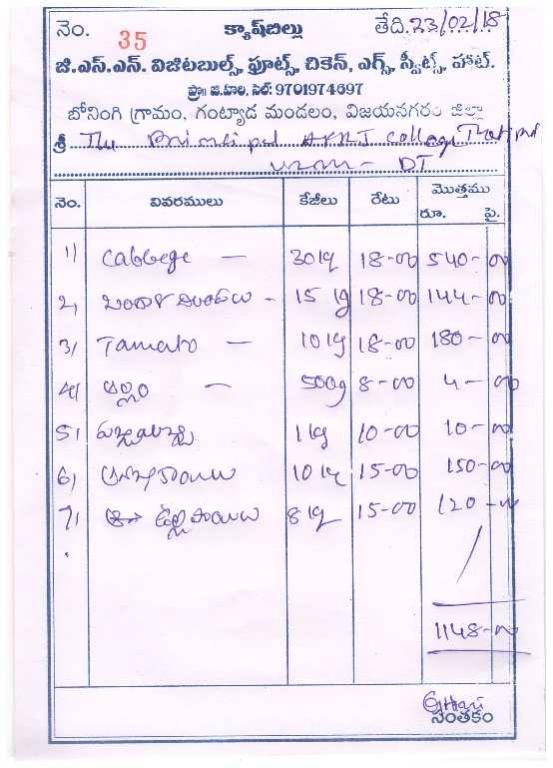 నెం. 35 క్యాష్‌బిల్లు తేది.23/02/18
జి.ఎస్.ఎన్. విజిటబుల్స్, ఫ్రూట్స్, చికెన్, ఎగ్స్, స్వీట్స్, హాట్.
సెల్: 9701974697
బోనింగి గ్రామం, గంట్యాడ మండలం, విజయనగరం జిల్లా
శ్రీ The Principal College
DT
నెం. వివరములు కేజీలు రేటు మొత్తము
రూ. పై.
1) Cabbege — 30 kg 18-00 540-00
2) – 15 kg 18-00 144-00
3) Tamato — 10 kg 18-00 180-00
4) అల్లం — 500g 8-00 4-00
5) 1 kg 10-00 10-00
6) 10 kg 15-00 150-00
7) ఉల్లిపాయలు 8 kg 15-00 120-00
1148-00
సంతకం